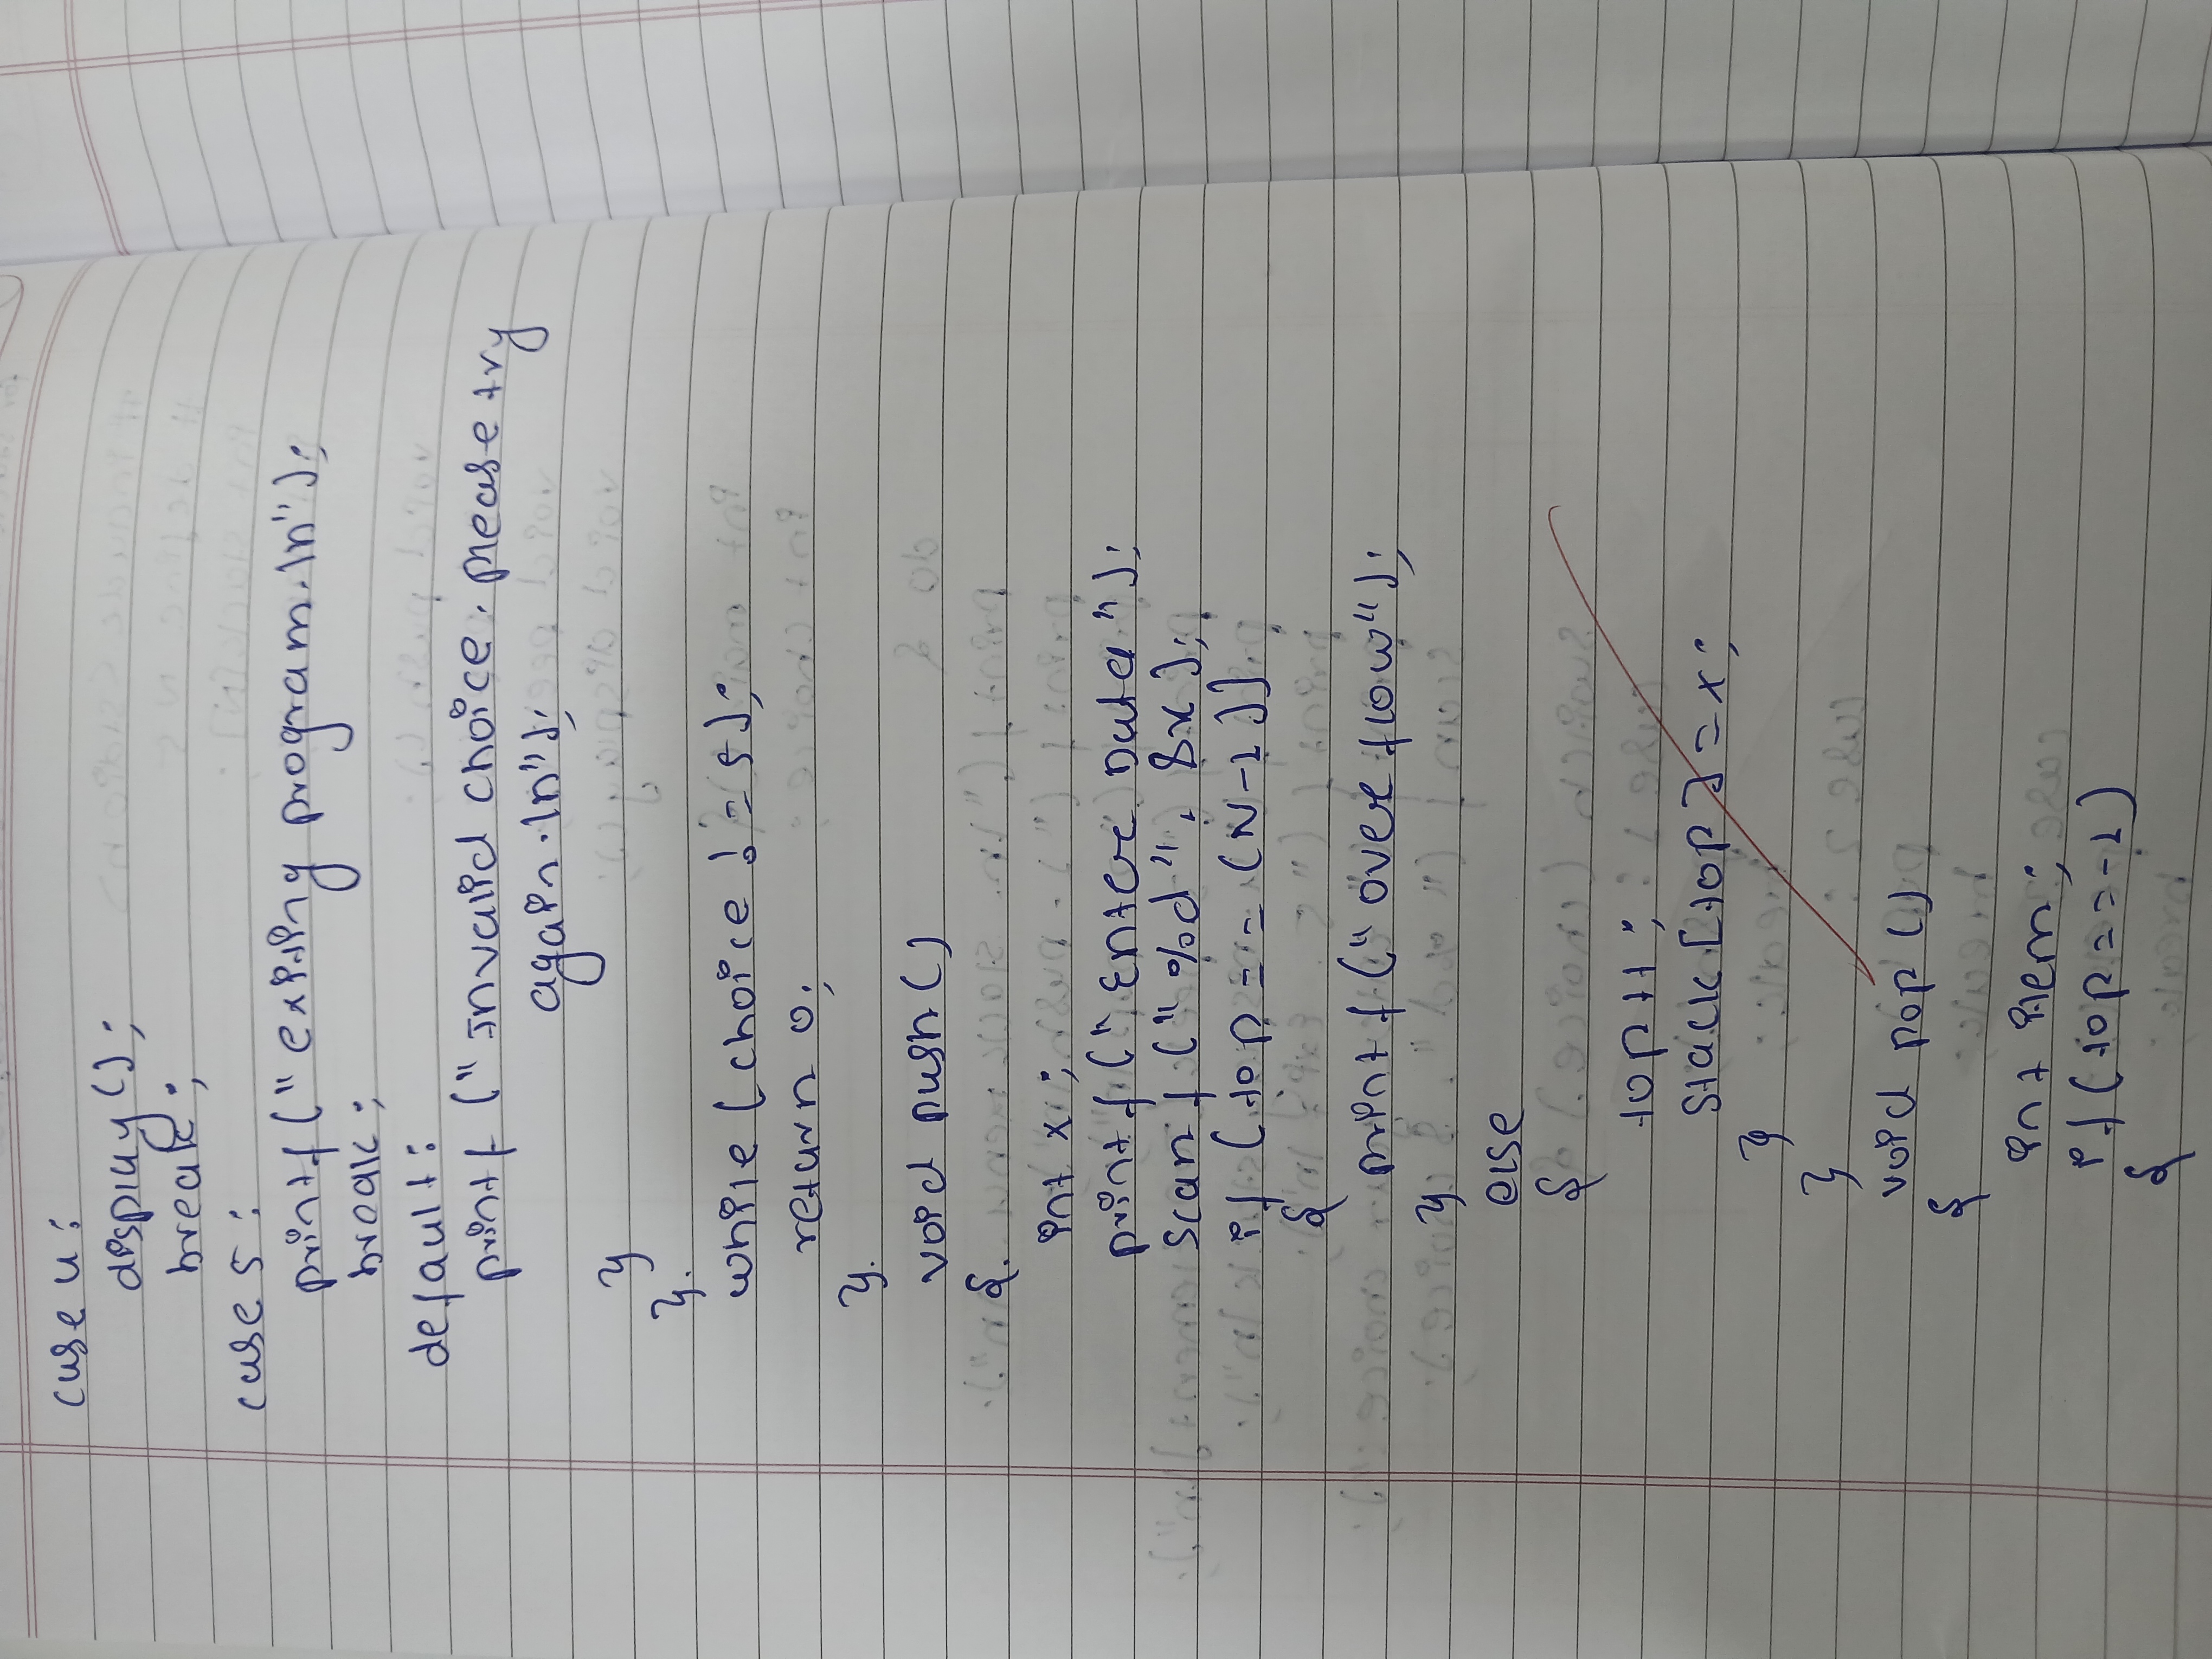 case 4:
display();
break;
case 5:
printf("exiting program.\n");
break;
default:
printf("Invalid choice. please try
again.\n");
}
}.
while(choice != 5);
return 0;
}.
void push()
{.
int x;
printf("Enter Data");
scanf("%d", &x);
if (top == (N-1))
{
printf("over flow");
}
else
{
top++;
stack[top]=x;
}
}
void pop()
{
int item;
if(top==-1)
{